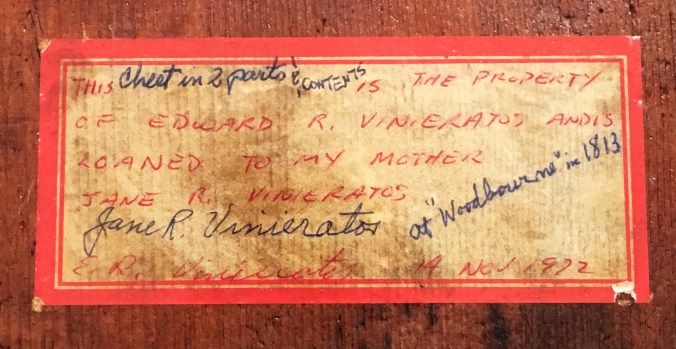 THIS Chest in 2 parts & CONTENTS IS THE PROPERTY
OF EDWARD R. VINIERATOS AND IS
LOANED TO MY MOTHER
JANE R. VINIERATOS
Jane R. Vinieratos at "Woodbourne" in 1813
E.R. Vinieratos 14 NOV 1972